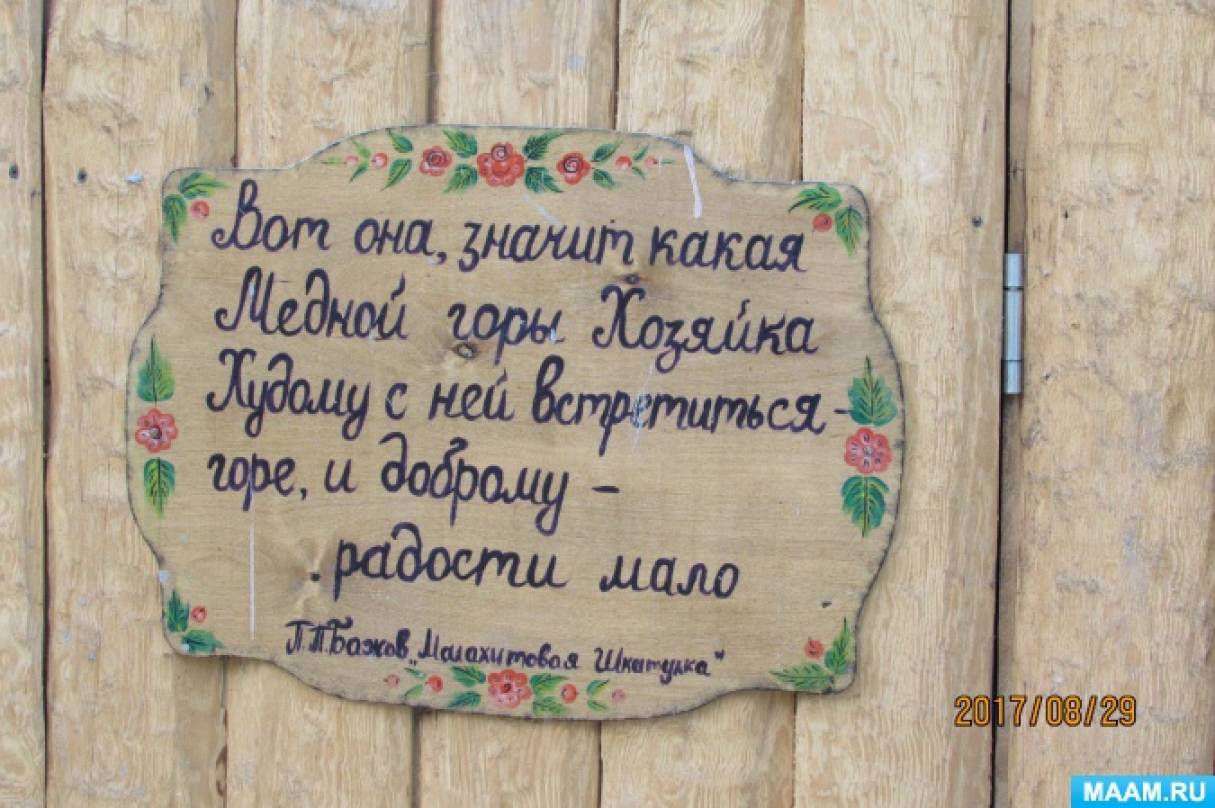 Вот она, значит какая
Медной горы Хозяйка
Худому с ней встретиться -
горе, и доброму -
радости мало
П.П.Бажов „Малахитовая Шкатулка"
2017/08/29
MAAM.RU